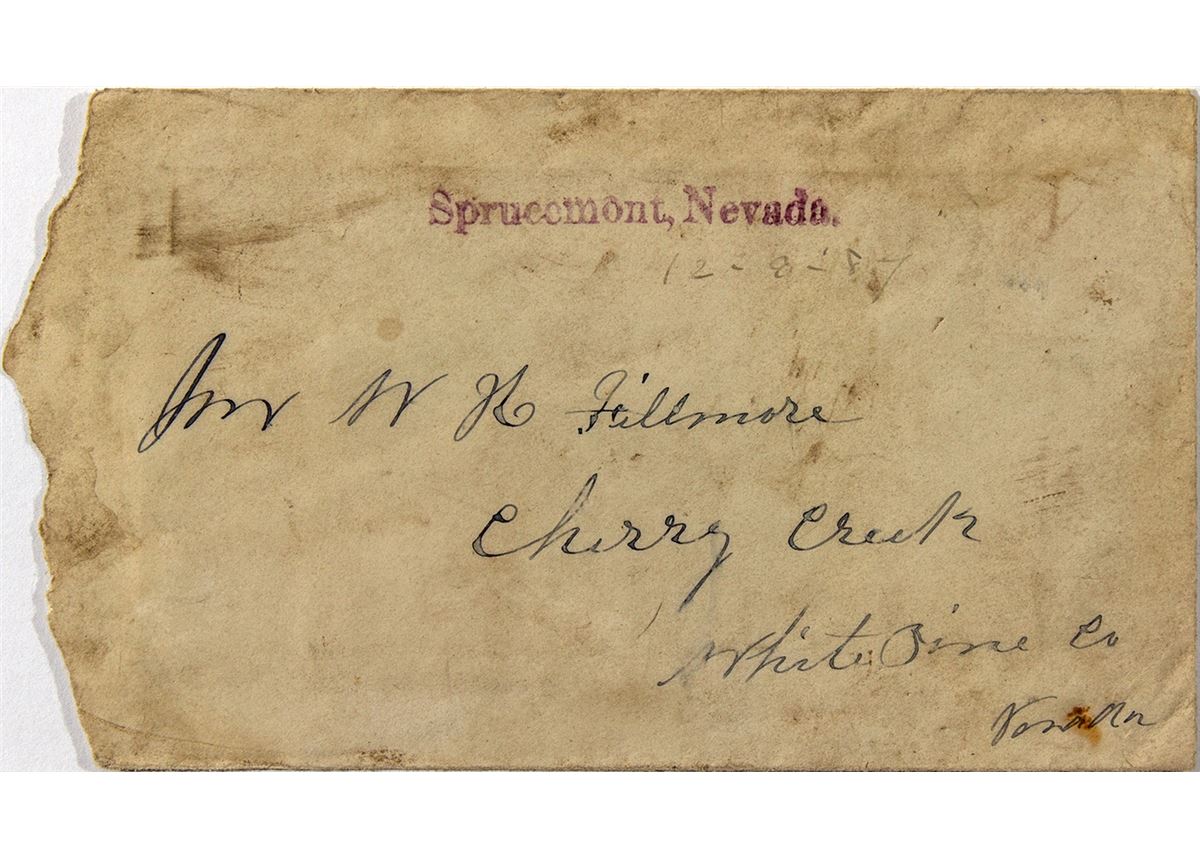 Sprucemont, Nevada.
12-8-87
Mr W H Fillmore
Cherry Creek
White Pine Co
Nevada